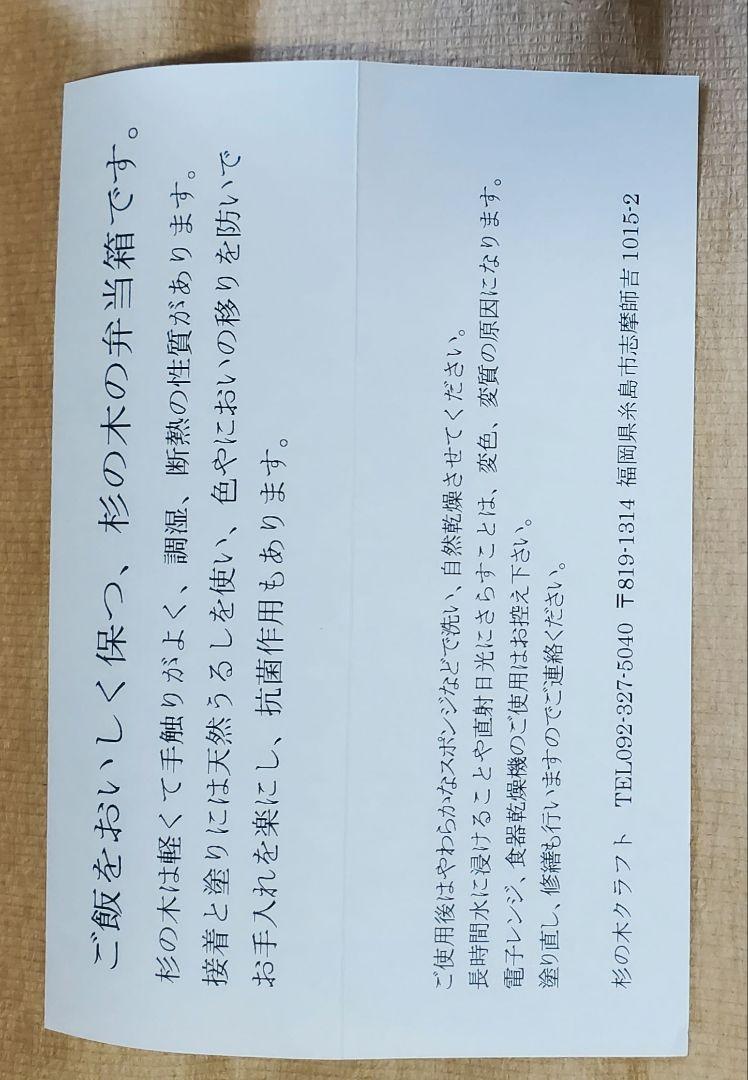 ご飯をおいしく保つ、杉の木の弁当箱です。
杉の木は軽くて手触りがよく、調湿、断熱の性質があります。
接着と塗りには天然うるしを使い、色やにおいの移りを防いで
お手入れを楽にし、抗菌作用もあります。
ご使用後はやわらかなスポンジなどで洗い、自然乾燥させてください。
長時間水に浸けることや直射日光にさらすことは、変色、変質の原因になります。
電子レンジ、食器乾燥機のご使用はお控え下さい。
塗り直し、修繕も行いますのでご連絡ください。
杉の木クラフト TEL092-327-5040 〒819-1314 福岡県糸島市志摩師吉1015-2